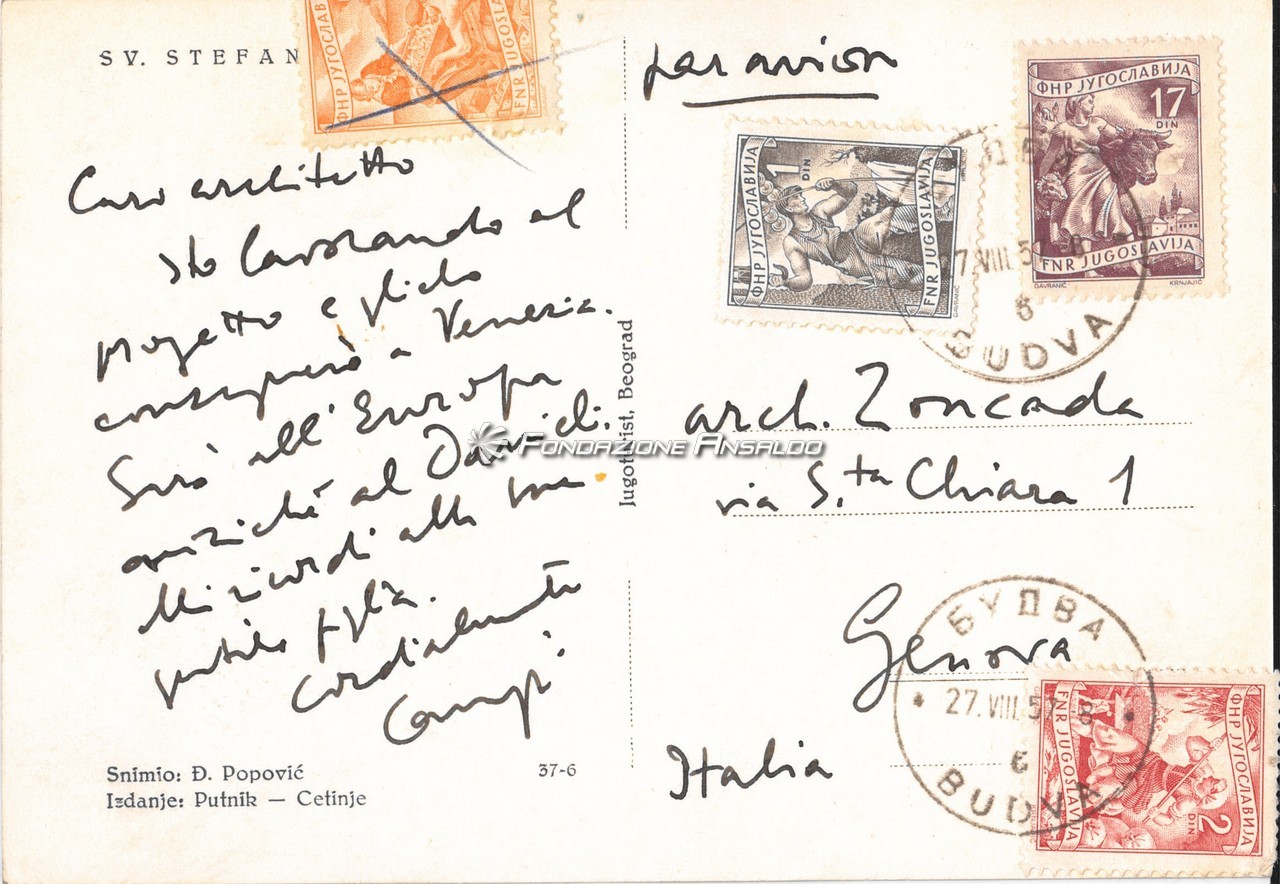 SV. STEFAN
par avion
Caro architetto
sto lavorando al
progetto e glielo
consegnerò a Venezia.
Sarò all'Europa
anziché al Danieli.
Mi ricordi alla sua
gentile figlia.
Cordialmente
Snimio: Đ. Popović
Izdanje: Putnik — Cetinje
37-6
Jugoturist, Beograd
FONDAZIONE ANSALDO
arch. Zoncada
via S.ta Chiara 1
Genova
Italia
ФНР ЈУГОСЛАВИЈА
FNR JUGOSLAVIJA
ФНР ЈУГОСЛАВИЈА
1 DIN
FNR JUGOSLAVIJA
ФНР ЈУГОСЛАВИЈА
17 DIN
FNR JUGOSLAVIJA
GAVRANIĆ
KRNJAJIĆ
7.VIII.5
6
BUDVA
БУДВА
27.VIII.57-8
6
BUDVA
FNR JUGOSLAVIJA
2 DIN
ФНР ЈУГОСЛАВИЈА